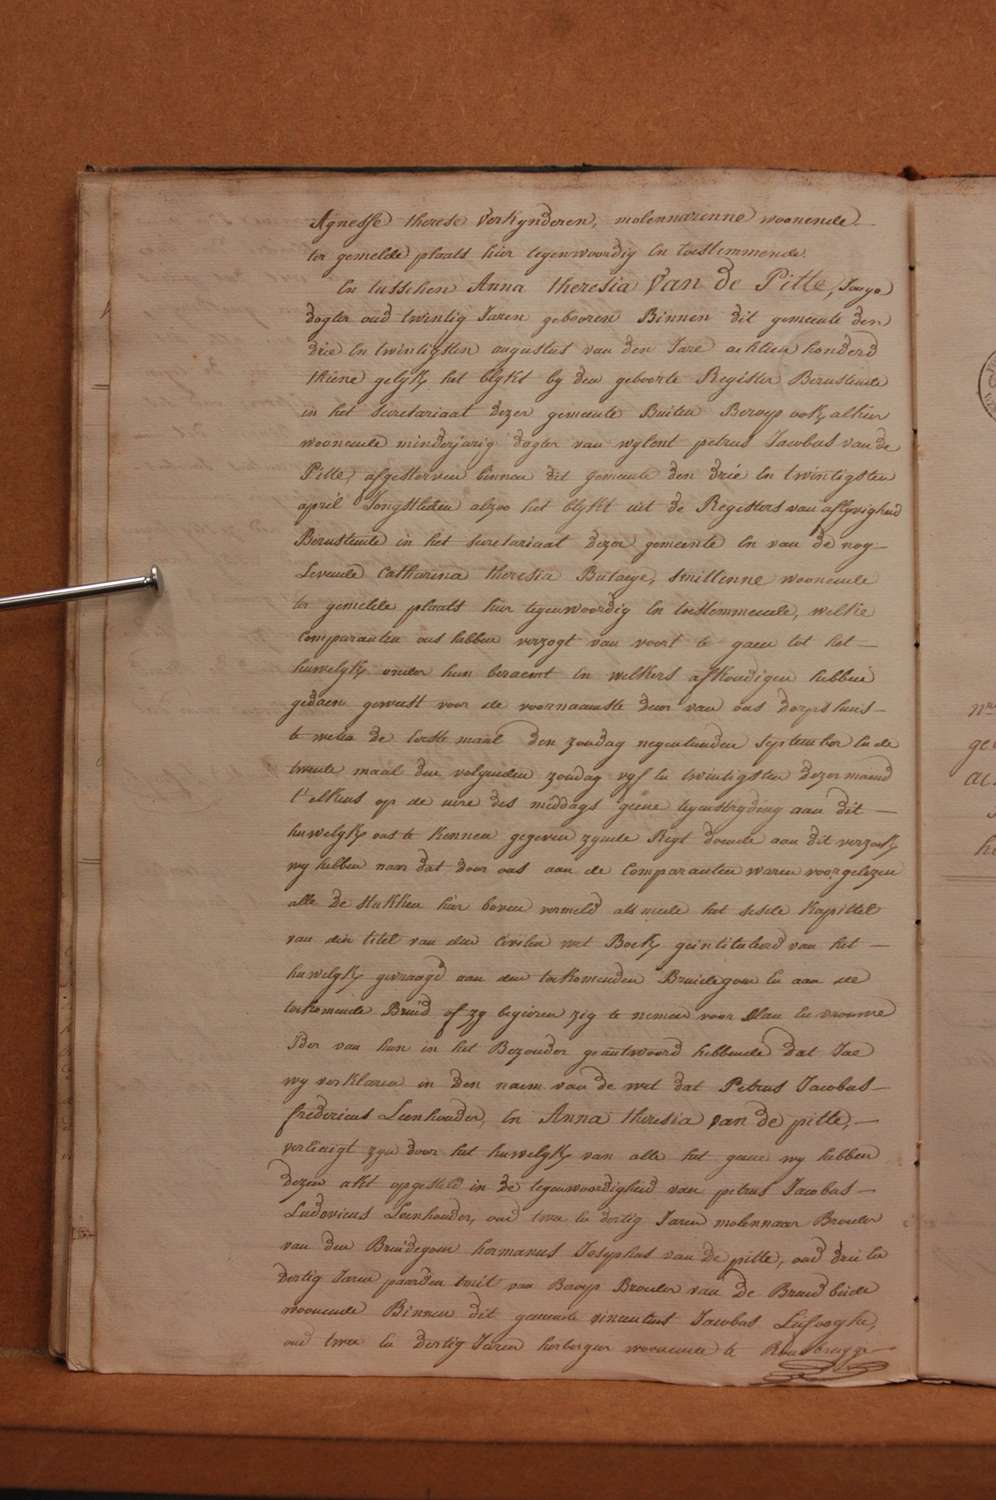 Agnesse therese Verkynderen, molennarenne woonende
ter gemelde plaats hier tegenwoordig En toestemmende.
En tusschen Anna theresia Van de Pitte, Jonge
dogter oud twintig Jaren gebooren Binnen dit gemeente den
drie En twintigsten augustus van den Jare achtien honderd
thiene gelyk het blykt by den geboorte Register Berustende
in het secretariaat dezer gemeente Buiten Beroep ook alhier
woonende minderjarig dogter van wylent petrus Jacobus van de
Pitte, afgestorven binnen dit gemeente den drie En twintigsten
april Jongstleden alzoo het blykt uit de Registers van aflyvigheid
Berustende in het secretariaat dezer gemeente En van de nog
Levende Catharina theresia Butaeye, smittenne woonende
ter gemelde plaats hier tegenwoordig En toestemmende, welke
Comparanten ons hebben verzogt van voort te gaen tot het
huwelyk onder hun beraemt En welkers afkondigen hebben
gedaen geweest voor de voornaamste deur van ons dorpshuis
te weten de eerste maal den zondag negentienden september En de
tweede maal den volgenden zondag vyf En twintigsten dezer maand
t'elkens op de uire des middags geene tegenstryding aan dit
huwelyk ons te kennen gegeven zynde Regt doende aan dit verzoek
wy hebben naar dat door ons aan de Comparanten waren voorgelezen
alle de stukken hier boven vermeld als mede het sesde kapittel
van den titel van den Civilen wet Boek geintituleerd van het
huwelyk gevraagd aan den toekomenden Bruidegom En aan de
toekomende Bruid of zy begieren zig te nemen voor Man En vrouwe
Ider van hun in het Bezonder geantwoord hebbende dat Jae
wy verklaren in den naem van de wet dat Petrus Jacobus
fredericus Leenhouder, En Anna theresia van de pitte,
vereenigt zyn door het huwelyk van alle het geene wy hebben
dezen akt opgesteld in de tegenwoordigheid van petrus Jacobus
Ludovicus Leenhouder, oud twee En dertig Jaren molennaar Broeder
van den Bruidegom hermanus Josephus van de pitte, oud drie En
dertig Jaren paarden smit van Beroep Broeder van de Bruid beide
woonende Binnen dit gemeente vincentius Jacobus
oud twee En dertig Jaren herbergier woonende te Rousbrugge
nr
ge
ac
h